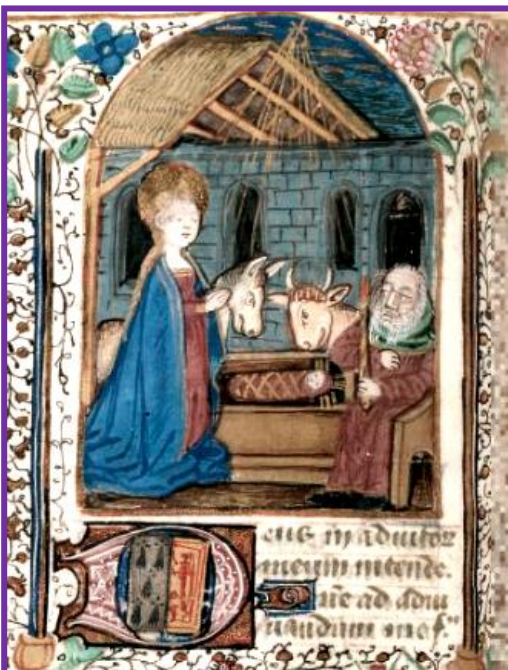 Deus in adiutor
meum intende.
Dne ad adiu
uandum me f.